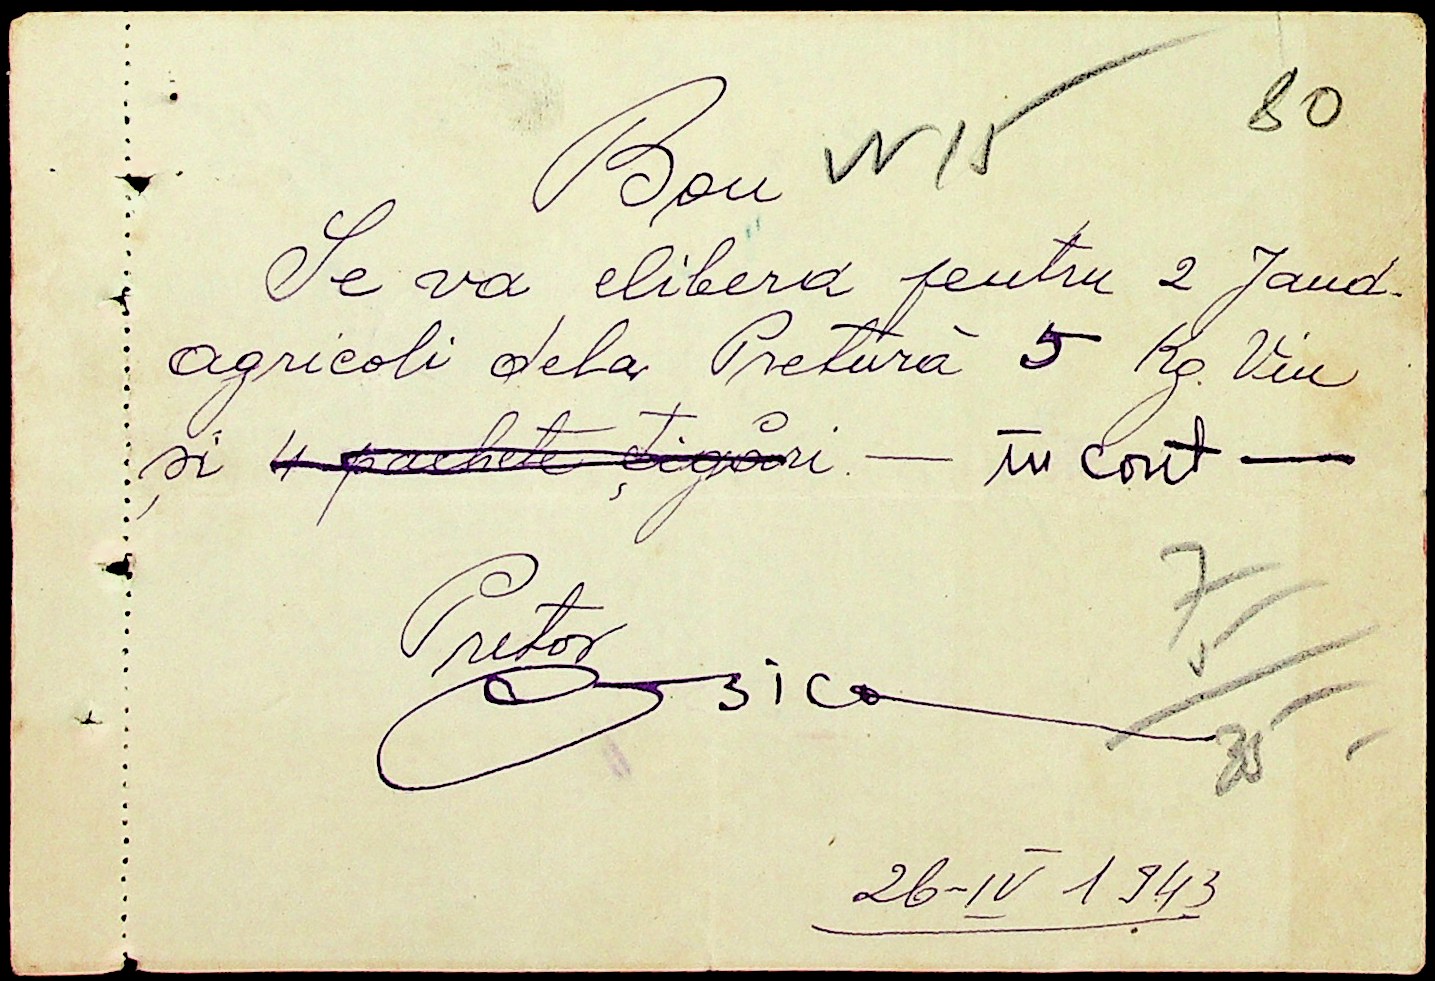 80
Bon N 15
Se va elibera pentru 2 Jand.
agricoli dela Pretură 5 Kg. Vin
și 4 pachete țigări — în cont —
Pretor
7
5
35 -
26-IV 1943